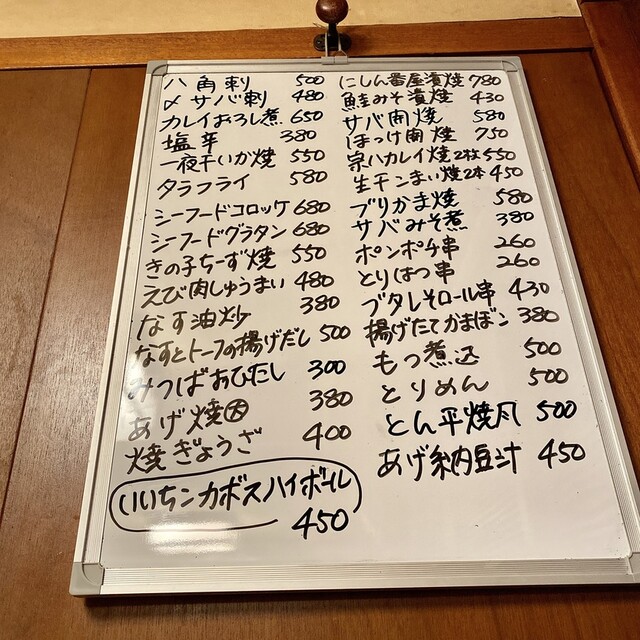 八角刺 500
〆サバ刺 480
カレイおろし煮 650
塩辛 380
一夜干いか焼 550
タラフライ 580
シーフードコロッケ 680
シーフードグラタン 680
きの子ちーず焼 550
えび肉しゅうまい 480
なす油炒 380
なすとトーフの揚げだし 500
みつばおひたし 300
あげ焼大 380
焼ぎょうざ 400
いいちこカボスハイボール
450
にしん番屋漬焼 780
鮭みそ漬焼 430
サバ開焼 580
ほっけ開焼 750
宗ハカレイ焼2枚 550
生干こまい焼2本 450
ブリかま焼 580
サバみそ煮 380
ポンポチ串 260
とりはつ串 260
ブタしそロール串 430
揚げたてかまぼこ 380
もつ煮込 500
とりめん 500
とん平焼風 500
あげ納豆汁 450